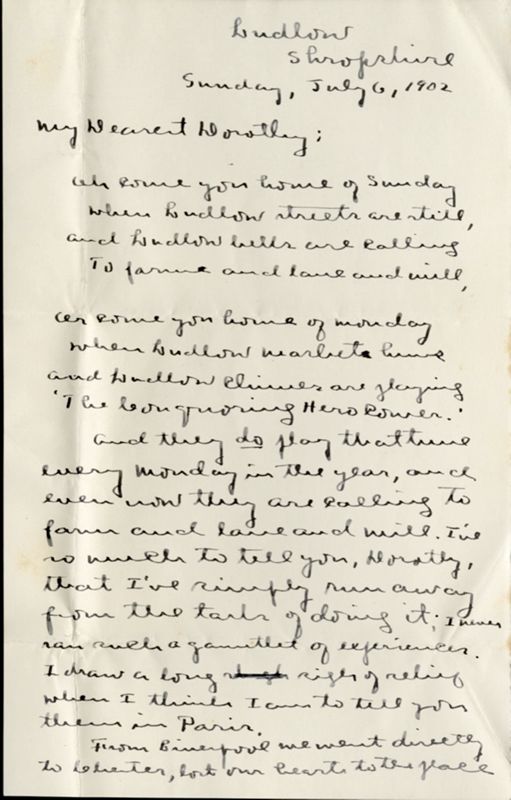 Ludlow
Shropshire
Sunday, July 6, 1902
My Dearest Dorothy;
Or come you home of Sunday
When Ludlow streets are still,
And Ludlow bells are calling
To farm and lane and mill,
Or come you home of Monday
When Ludlow market hums
And Ludlow chimes are playing
'The Conquering Hero Comes.'
And they do play that tune
every Monday in the year, and
even now they are calling to
farm and lane and mill. I've
so much to tell you, Dorothy,
that I've simply run away
from the task of doing it; I never
ran such a gauntlet of experiences.
I draw a long sigh of relief
when I think I am to tell you
them in Paris.
From Liverpool we went directly
to Chester, lost our hearts to the place